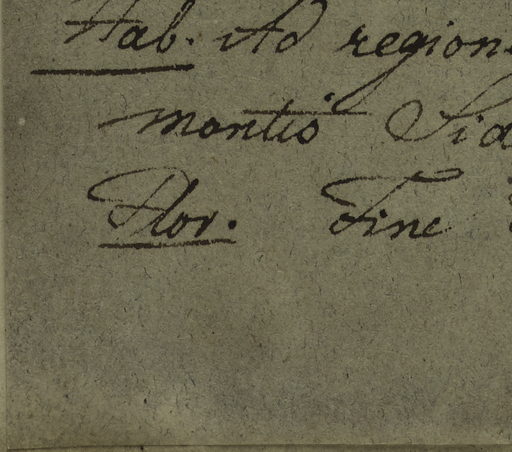 Hab. Ad region
montis Sid
Flor. Fine